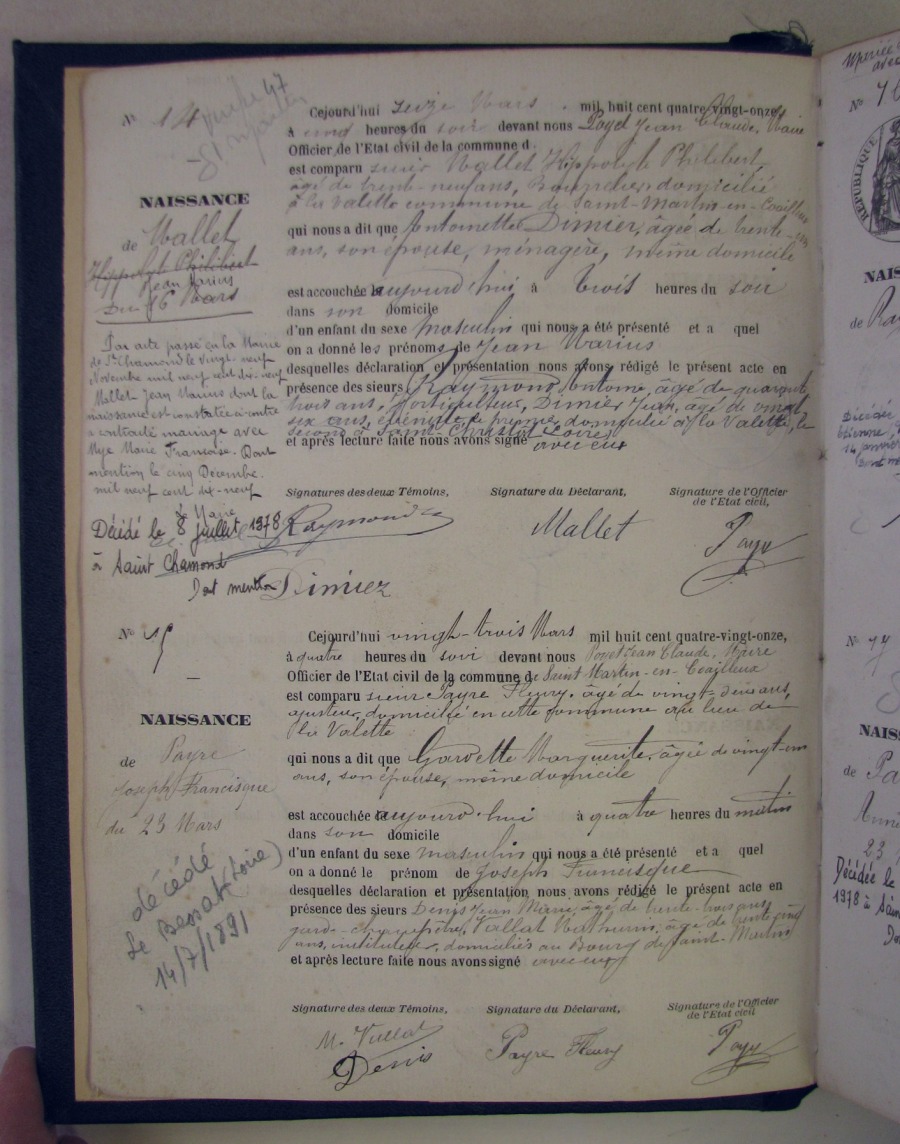 N° 14
NAISSANCE
de Mallet
Hippolyte Philibert
Jean Marius
Du 16 Mars
Par acte passé en la Mairie
de St Chamond le vingt-neuf
Novembre mil neuf cent dix-neuf
Mallet Jean Marius dont la
naissance est constatée ci-contre
a contracté mariage avec
Marie Françoise. Dont
mention le cinq Décembre
mil neuf cent dix-neuf
Le Maire
Décédé le 8 juillet 1978
à Saint Chamond
Dont mention
Cejourd'hui seize Mars mil huit cent quatre-vingt-onze,
à cinq heures du soir devant nous Payet Jean Claude, Maire
Officier de l'Etat civil de la commune d
est comparu sieur Mallet Hippolyte Philibert,
âgé de trente-neuf ans, domicilié
à la Valette commune de Saint-Martin-en-Coailleux
qui nous a dit que Antoinette Dimier, âgée de trente-
ans, son épouse, ménagère, même domicile
est accouchée aujourd'hui à trois heures du soir
dans son domicile
d'un enfant du sexe masculin qui nous a été présenté et a quel
on a donné les prénoms de Jean Marius
desquelles déclaration et présentation nous avons rédigé le présent acte en
présence des sieurs Raymond Antoine, âgé de quarante
trois ans, Horticulteur, Dimier Jean, âgé de vingt
six ans, le premier domicilié à la Valette, le
second à Saint-Christôt (Loire)
et après lecture faite nous avons signé avec eux
Signatures des deux Témoins,
Signature du Déclarant,
Signature de l'Officier
de l'Etat civil,
Raymond
Mallet
Dimiez
N° 15
NAISSANCE
de Payre
Joseph Francisque
du 23 Mars
décédé
Le Bessat (Loire)
14/7/1891
Cejourd'hui vingt-trois Mars mil huit cent quatre-vingt-onze,
à quatre heures du soir devant nous Payet Jean Claude, Maire
Officier de l'Etat civil de la commune de Saint Martin-en-Coailleux
est comparu sieur Payre Fleury, âgé de vingt-deux ans,
ajusteur, domicilié en cette commune au lieu de
la Valette
qui nous a dit que Marguerite, âgée de vingt-un
ans, son épouse, même domicile
est accouchée aujourd'hui à quatre heures du matin
dans son domicile
d'un enfant du sexe masculin qui nous a été présenté et a quel
on a donné le prénom de Joseph Francisque
desquelles déclaration et présentation nous avons rédigé le présent acte en
présence des sieurs Denis Jean Marie, âgé de trente-trois ans
garde-champêtre, Vallat Mathurin, âgé de trente cinq
ans, instituteur, domiciliés au Bourg de Saint-Martin
et après lecture faite nous avons signé avec eux
Signature des deux Témoins,
Signature du Déclarant,
Signature de l'Officier
de l'Etat civil
M. Vallat
Denis
Payre Fleury
N°
RÉPUBLIQUE
NAIS
de
N° 17
NAISS
de Pa
23
Décédée le
1978 à Sain